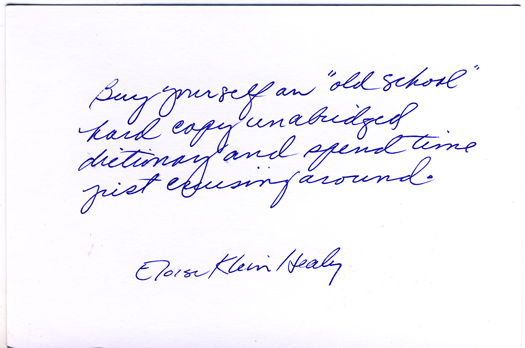 Buy yourself an "old school"
hard copy unabridged
dictionary and spend time
just crusing around.
Eloise Klein Healy